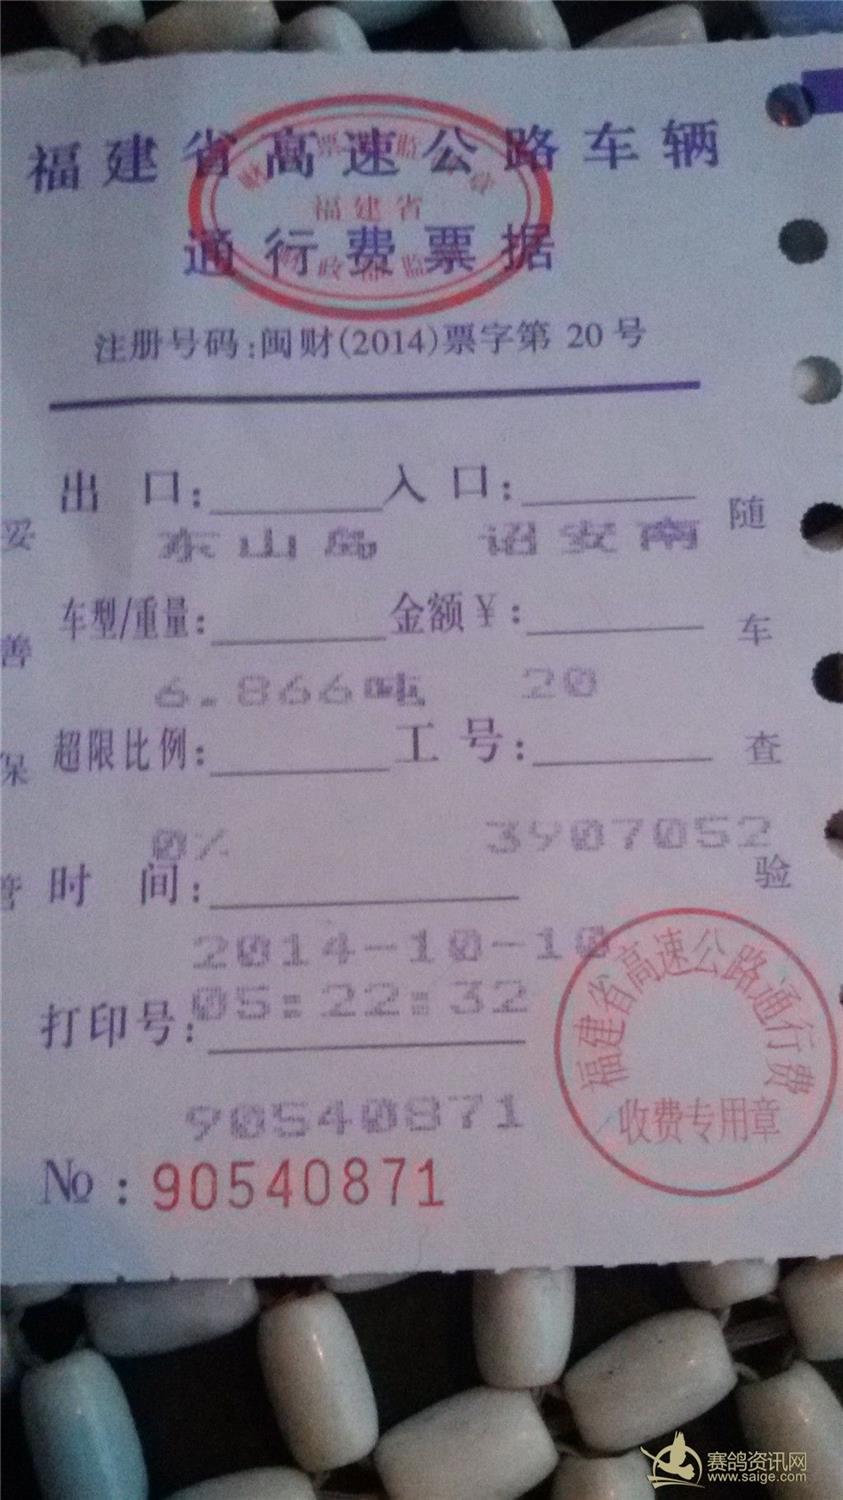 福建省高速公路车辆
通行费票据
福建省
注册号码:闽财(2014)票字第 20 号
出 口: 入 口:
东山岛 诏安南
车型/重量: 金额¥:
6.866吨 20
超限比例: 工 号:
0% 3907052
时 间:
2014-10-10
05:22:32
打印号:
90540871
№:90540871
妥善保管
随车查验
福建省高速公路通行费
收费专用章
赛鸽资讯网
www.saige.com